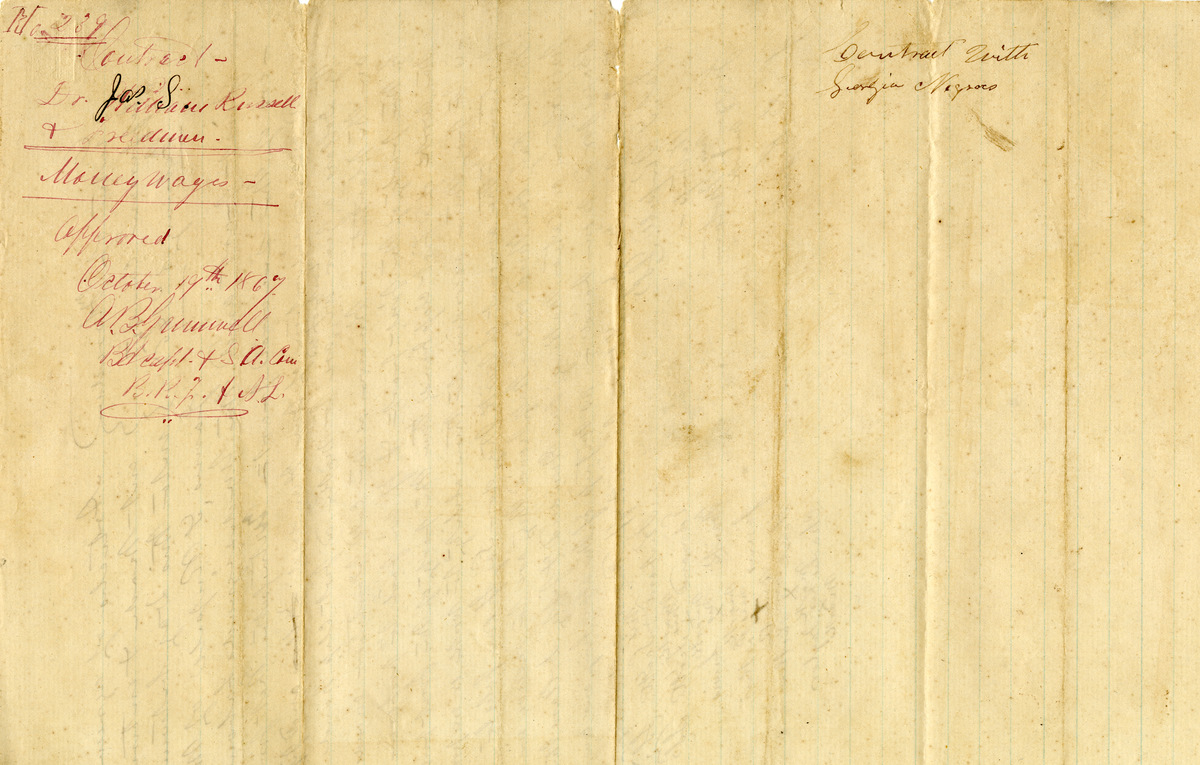 No. 239
Contract -
Dr. Jas. S. William Russell
& Freedmen.
Money Wages -
Approved
October 19th 1867.
A.B. Grunwell
Bt Capt. & S. A. Com
B.R.F. & A.L.
Contract With
Georgia Negroes